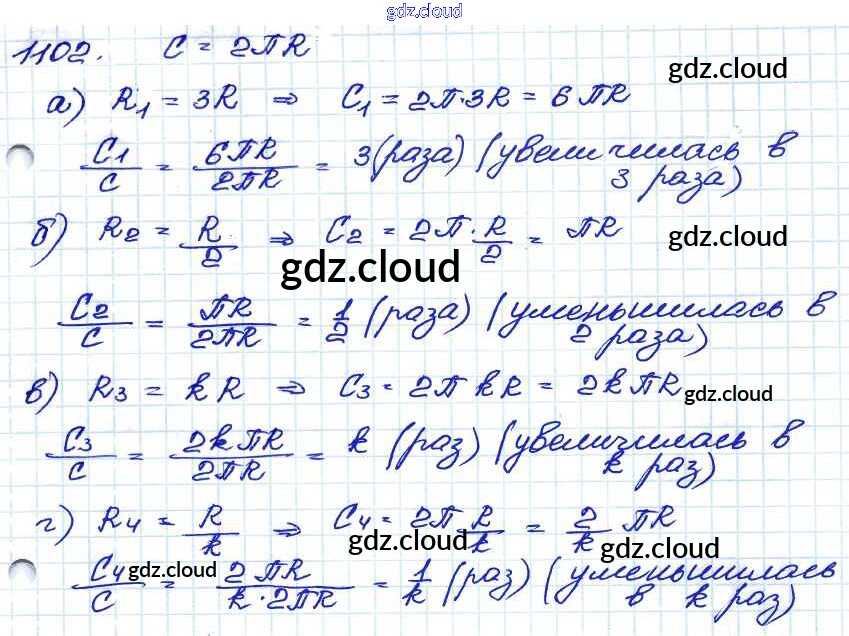 gdz.cloud
1102. C = 2πR
gdz.cloud
а) R₁ = 3R ⇒ C₁ = 2π·3R = 6πR
C₁/C = 6πR/2πR = 3 (раза) (увеличилась в
3 раза)
б) R₂ = R/2 ⇒ C₂ = 2π·R/2 = πR
gdz.cloud
gdz.cloud
C₂/C = πR/2πR = 1/2 (раза) (уменьшилась в
2 раза)
в) R₃ = kR ⇒ C₃ = 2π kR = 2kπR
gdz.cloud
C₃/C = 2kπR/2πR = k (раз) (увеличилась в
k раз)
г) R₄ = R/k ⇒ C₄ = 2π R/k = 2/k πR
gdz.cloud
gdz.cloud
C₄/C = 2πR/k·2πR = 1/k (раз) (уменьшилась
gdz.cloud
в k раз)